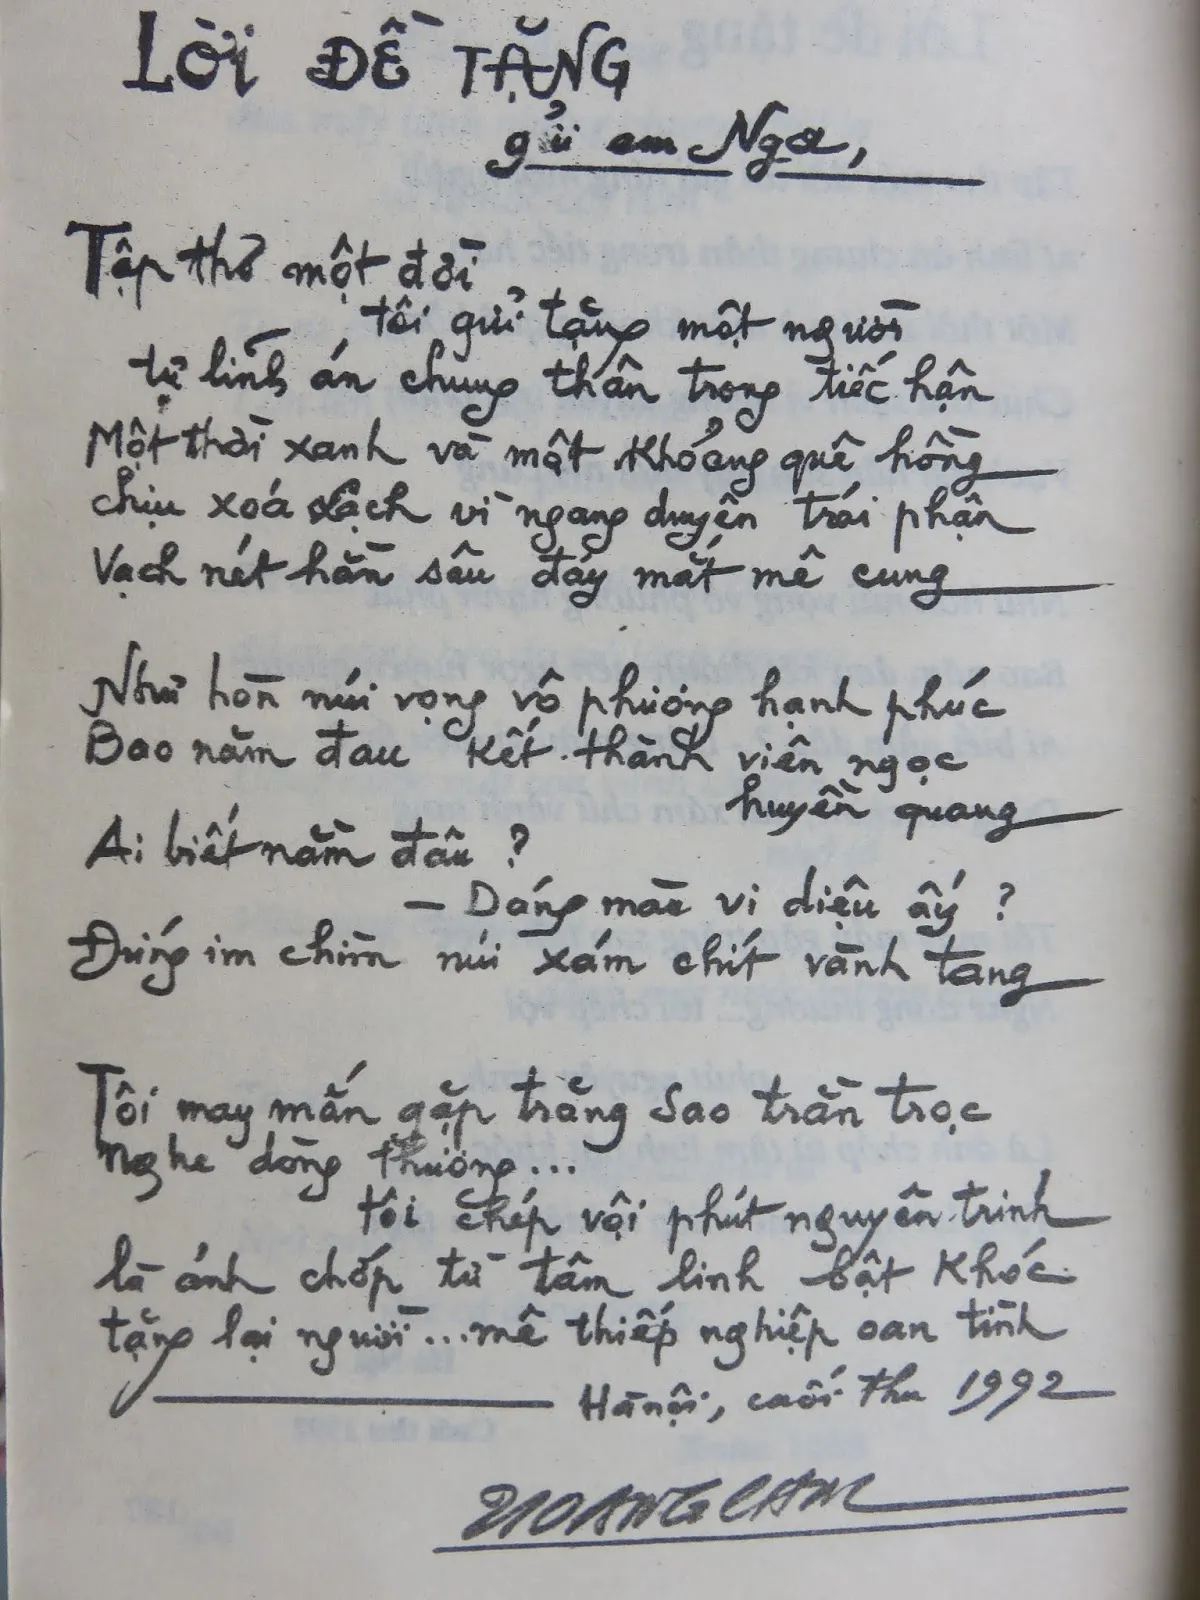 LỜI ĐỀ TẶNG
gửi em Nga,
Tập thơ một đời
tôi gửi tặng một người
tự lĩnh án chung thân trong tiếc hận
Một thời xanh và một khoảng quê hồng
chịu xoá sạch vì ngang duyên trái phận
Vạch nét hằn sâu đáy mắt mê cung
Như hòn núi vọng về phương hạnh phúc
Bao năm đau kết thành viên ngọc
huyền quang
Ai biết nằm đâu ?
— Dáng màu vi diệu ấy ?
Đứng im chìm núi xám chít vành tang
Tôi may mắn gặp trăng sao trằn trọc
Nghe dòng thương...
tôi chép vội phút nguyên trinh
là ánh chớp từ tâm linh bật khóc
tặng lại người... mê thiếp nghiệp oan tình
Hà nội, cuối thu 1992
HOANGCAM